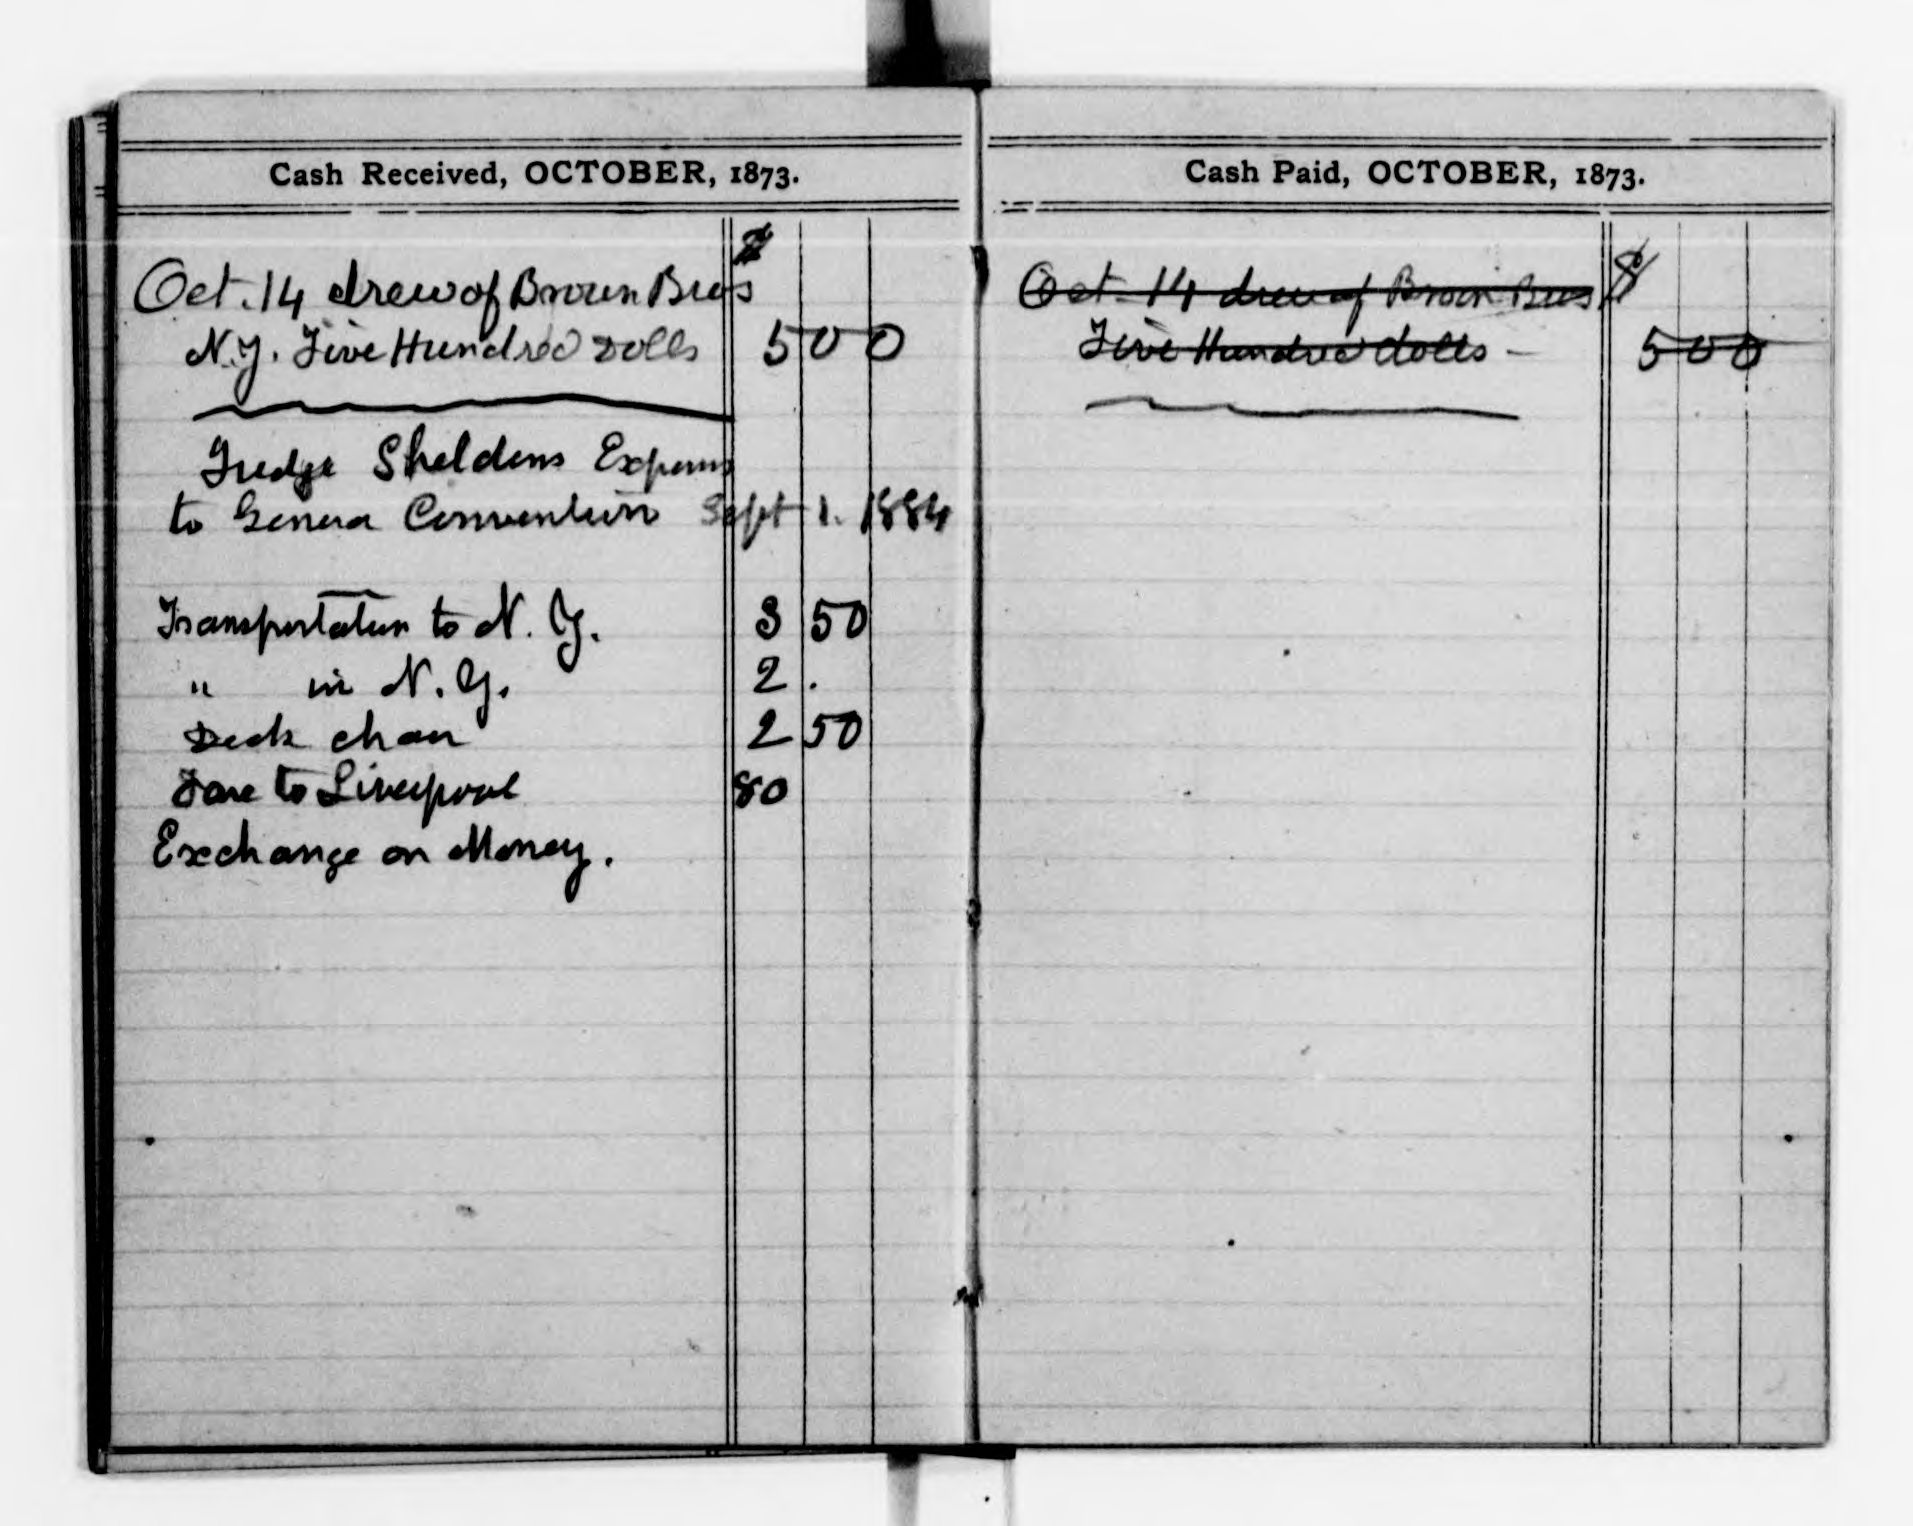 Cash Received, OCTOBER, 1873.
$
Oct. 14 drew of Brown Bros
N.Y. Five Hundred Dolls 500
Judge Sheldons Expens
to Geneva Convention Sept 1. 1884
Transportation to N. Y. 3 50
" in N. Y. 2 .
Deck chair 2 50
Fare to Liverpool 80
Exchange on Money.
Cash Paid, OCTOBER, 1873.
Oct 14 drew of Brown Bros $
Five Hundred dolls – 500